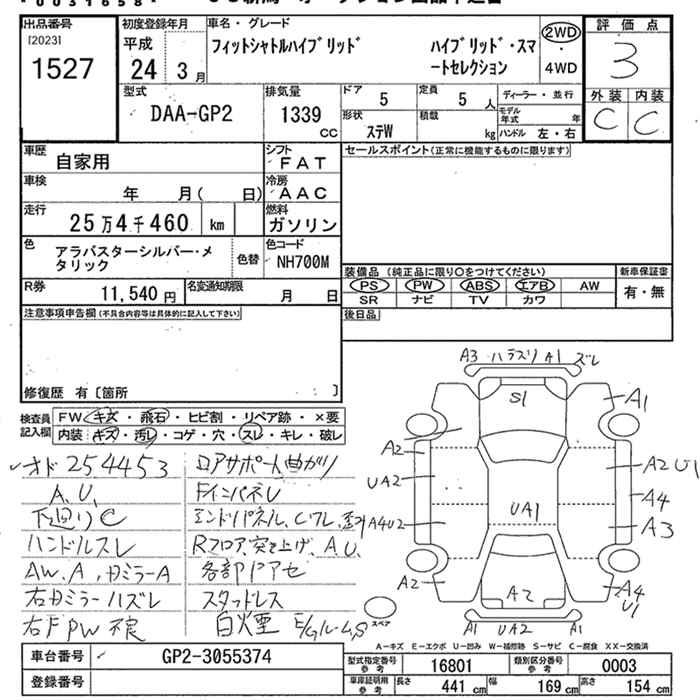 出品番号
[2023]
1527
初度登録年月
平成
24 3月
車名・グレード
フィットシャトルハイブリッド ハイブリッド・スマートセレクション
2WD
・
4WD
評価点
3
外装 内装
C C
型式
DAA-GP2
排気量
1339
CC
ドア 5
定員 5 人
ディーラー・並行
モデル年式 年
形状
ステW
積載 kg
ハンドル 左・右
車歴
自家用
シフト
FAT
セールスポイント(正常に機能するものに限ります)
車検
年 月( 日)
冷房
AAC
走行
25万4千460 km
燃料
ガソリン
色
アラバスターシルバー・メタリック
色替
色コード
NH700M
装備品(純正品に限り○をつけてください)
新車保証書
PS PW ABS エアB AW
有・無
SR ナビ TV カワ
R券
11,540 円
名変通知期限
月 日
後日品
注意事項申告欄(不具合内容等は具体的に記入して下さい)
修復歴 有〔箇所 〕
検査員記入欄
FW キズ・飛石・ヒビ割・リペア跡・×要
内装 キズ・汚レ・コゲ・穴・スレ・キレ・破レ
オド254453
A、U、
下廻りC
ハンドルスレ
AW、A、ドミラーA
右ドミラーハズレ
右F PW 不良
ロアサポート曲がり
Fインパネレ
エンドパネル、Cワレ、歪み
Rフロア突き上げ、A、U、
各部ドアセ
スタッドレス
白煙 E/Gルーム、S
A3 ハラスリ A1 ズレ
S1
A1
A2
UA2
A2 U1
A4
UA1
A4U2
A3
A2
A2
A4
U1
スペア
A1 UA2 A1
A-キズ E-エクボ U-凹み W-補修跡 S-サビ C-腐食 XX-交換済
車台番号
GP2-3055374
登録番号
型式指定番号
参考
16801
類別区分番号
参考
0003
車庫証明用
参考
長さ 441 cm
幅 169 cm
高さ 154 cm